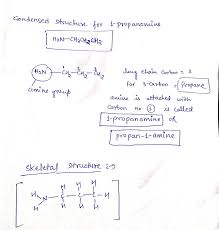 Condensed structure for 1-propanamine
H₂N—CH₂CH₂CH₃
H₂N — CH₂ — CH₂ — CH₃
amine group
long chain carbon = 3
for 3-carbon = Propane
amine is attached with
carbon no 1 is called
1-propanamine or
propan-1-amine
Skeletal structure is
H H H
H₂N — C — C — C — H
H H H